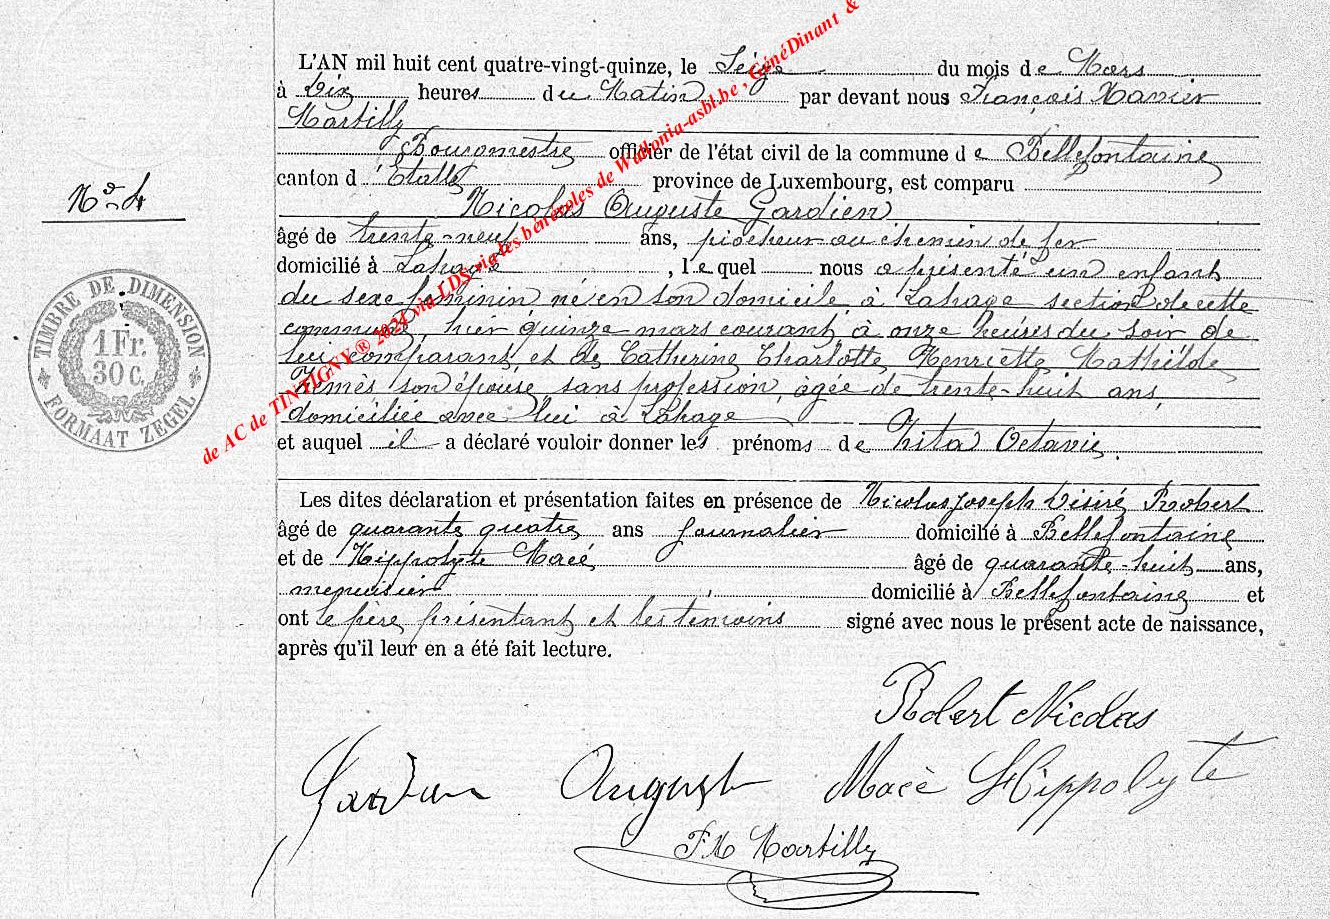 L'AN mil huit cent quatre-vingt-quinze, le Seize du mois de Mars
à Dix heures du Matin par devant nous François Xavier
Martilly
Bourgmestre officier de l'état civil de la commune de Bellefontaine
canton d'Etalle province de Luxembourg, est comparu
Nicolas Auguste Gardien
âgé de trente-neuf ans, piocheur au chemin de fer
domicilié à Lahage, lequel nous a présenté un enfant
du sexe féminin né en son domicile à Lahage section de cette
commune, hier quinze mars courant à onze heures du soir de
lui comparant et de Catherine Charlotte Henriette Mathilde
son épouse, sans profession, âgée de trente-huit ans,
domiciliée avec lui à Lahage
et auquel il a déclaré vouloir donner les prénoms de Zita Octavie.
Les dites déclaration et présentation faites en présence de Nicolas Joseph Désiré Robert
âgé de quarante quatre ans journalier domicilié à Bellefontaine
et de Hippolyte Macé âgé de quarante-huit ans,
menuisier domicilié à Bellefontaine et
ont le père présentant et les témoins signé avec nous le présent acte de naissance,
après qu'il leur en a été fait lecture.
Robert Nicolas
Gardien August Macé Hippolyte
FX Martilly
N° 4
TIMBRE DE DIMENSION
1 Fr.
30 c.
FORMAAT ZEGEL
de AC de TINTIGNY ® 2024 via LDS via les bénévoles de Wallonia-asbl.be, GénéDinant &